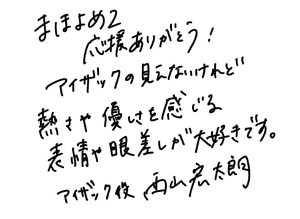 まほよめ2
応援ありがとう！
アイザックの見えないけれど
熱さや優しさを感じる
表情や眼差しが大好きです。
アイザック役 西山宏太朗